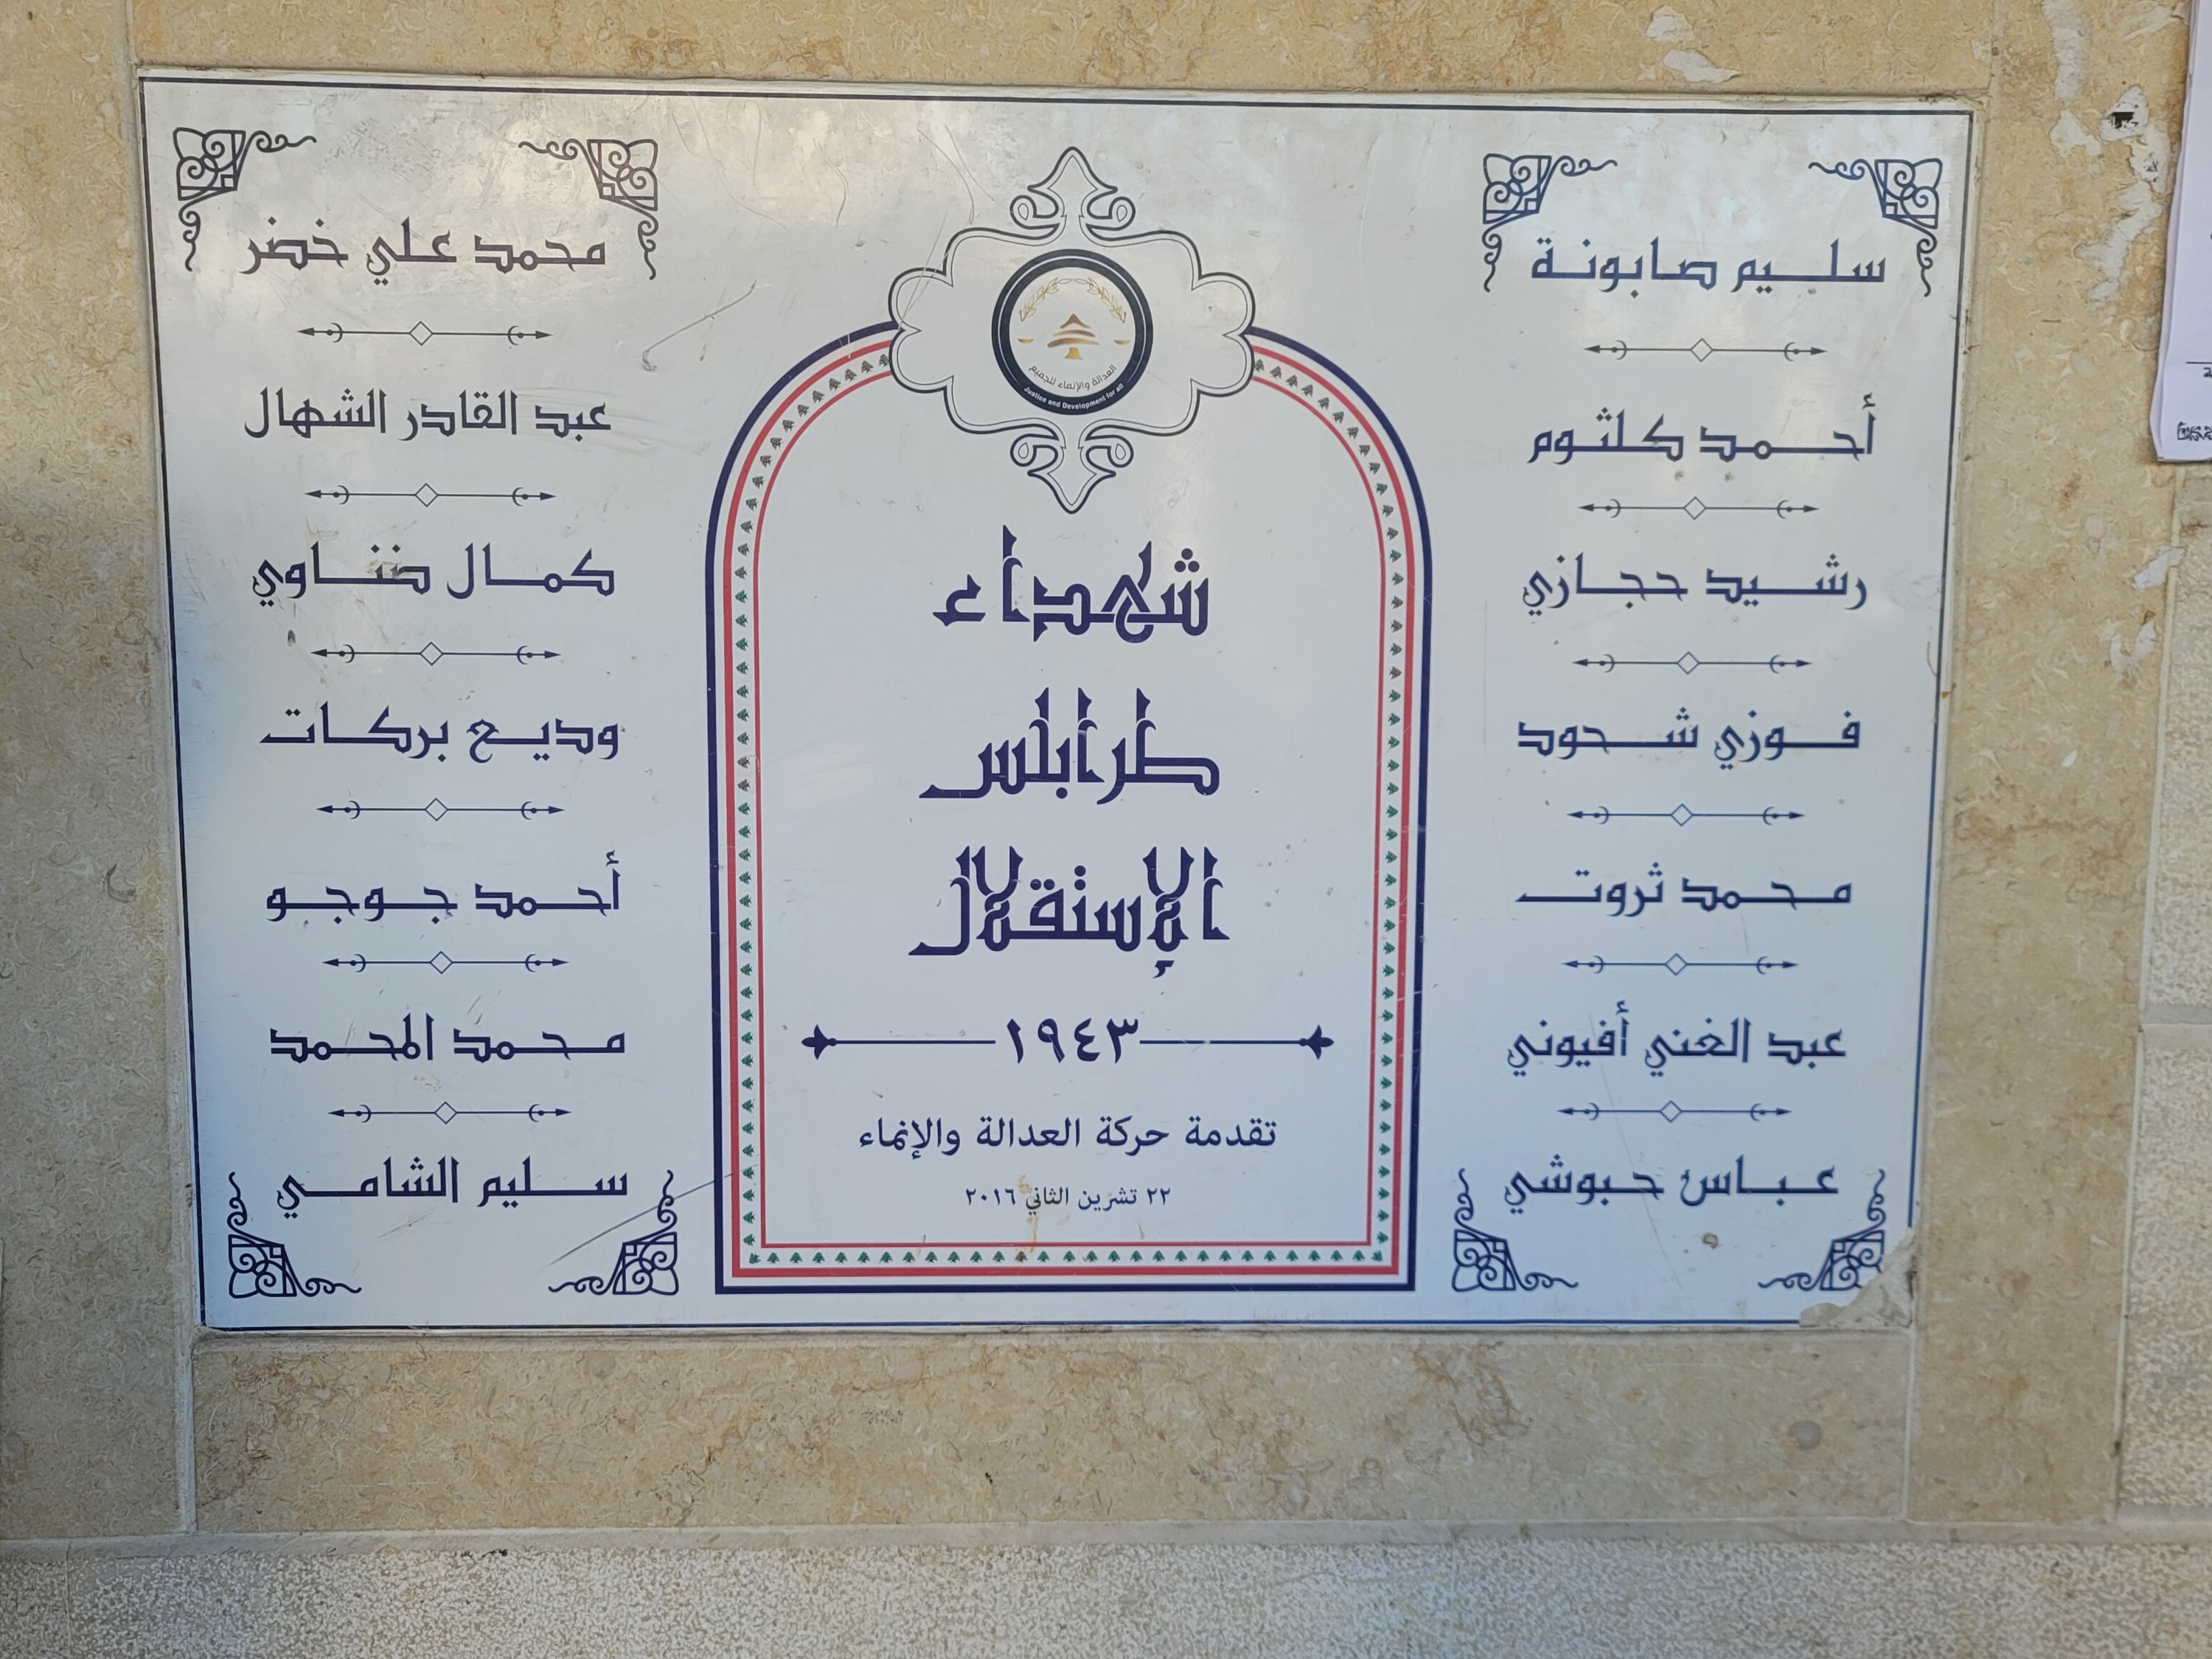 سليم صابونة
أحمد كلثوم
رشيد حجازي
فوزي شحود
محمد ثروت
عبد الغني أفيوني
عباس حبوشي
العدالة والإنماء للجميع
Justice and Development for all
شهداء
طرابلس
الإستقلال
١٩٤٣
تقدمة حركة العدالة والإنماء
٢٢ تشرين الثاني ٢٠١٦
محمد علي خضر
عبد القادر الشهال
كمال ضناوي
وديع بركات
أحمد جوجو
محمد المحمد
سليم الشامي